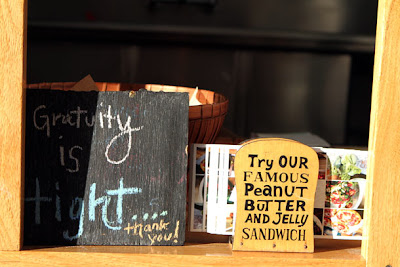 Gratuity
is
tight....
thank
you!
Try OUR
FAMOUS
Peanut
BUTTER
AND JELLY
SANDWICH